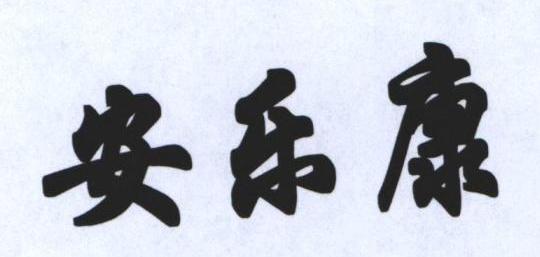 安乐康